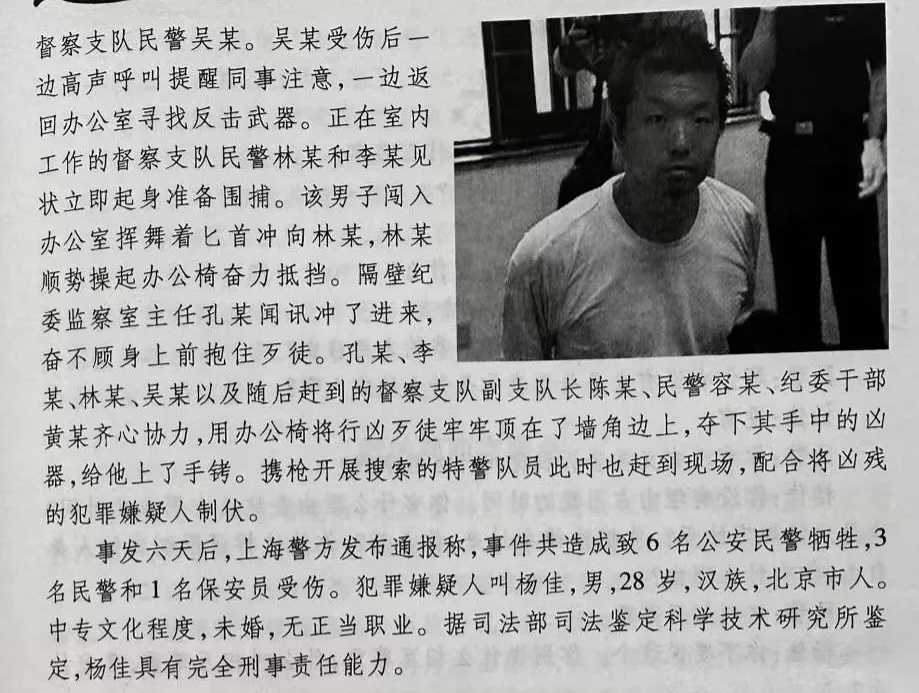 督察支队民警吴某。吴某受伤后一
边高声呼叫提醒同事注意,一边返
回办公室寻找反击武器。正在室内
工作的督察支队民警林某和李某见
状立即起身准备围捕。该男子闯入
办公室挥舞着匕首冲向林某,林某
顺势操起办公椅奋力抵挡。隔壁纪
委监察室主任孔某闻讯冲了进来,
奋不顾身上前抱住歹徒。孔某、李
某、林某、吴某以及随后赶到的督察支队副支队长陈某、民警容某、纪委干部
黄某齐心协力,用办公椅将行凶歹徒牢牢顶在了墙角边上,夺下其手中的凶
器,给他上了手铐。携枪开展搜索的特警队员此时也赶到现场,配合将凶残
的犯罪嫌疑人制伏。
事发六天后,上海警方发布通报称,事件共造成致 6 名公安民警牺牲,3
名民警和 1 名保安员受伤。犯罪嫌疑人叫杨佳,男,28 岁,汉族,北京市人。
中专文化程度,未婚,无正当职业。据司法部司法鉴定科学技术研究所鉴
定,杨佳具有完全刑事责任能力。